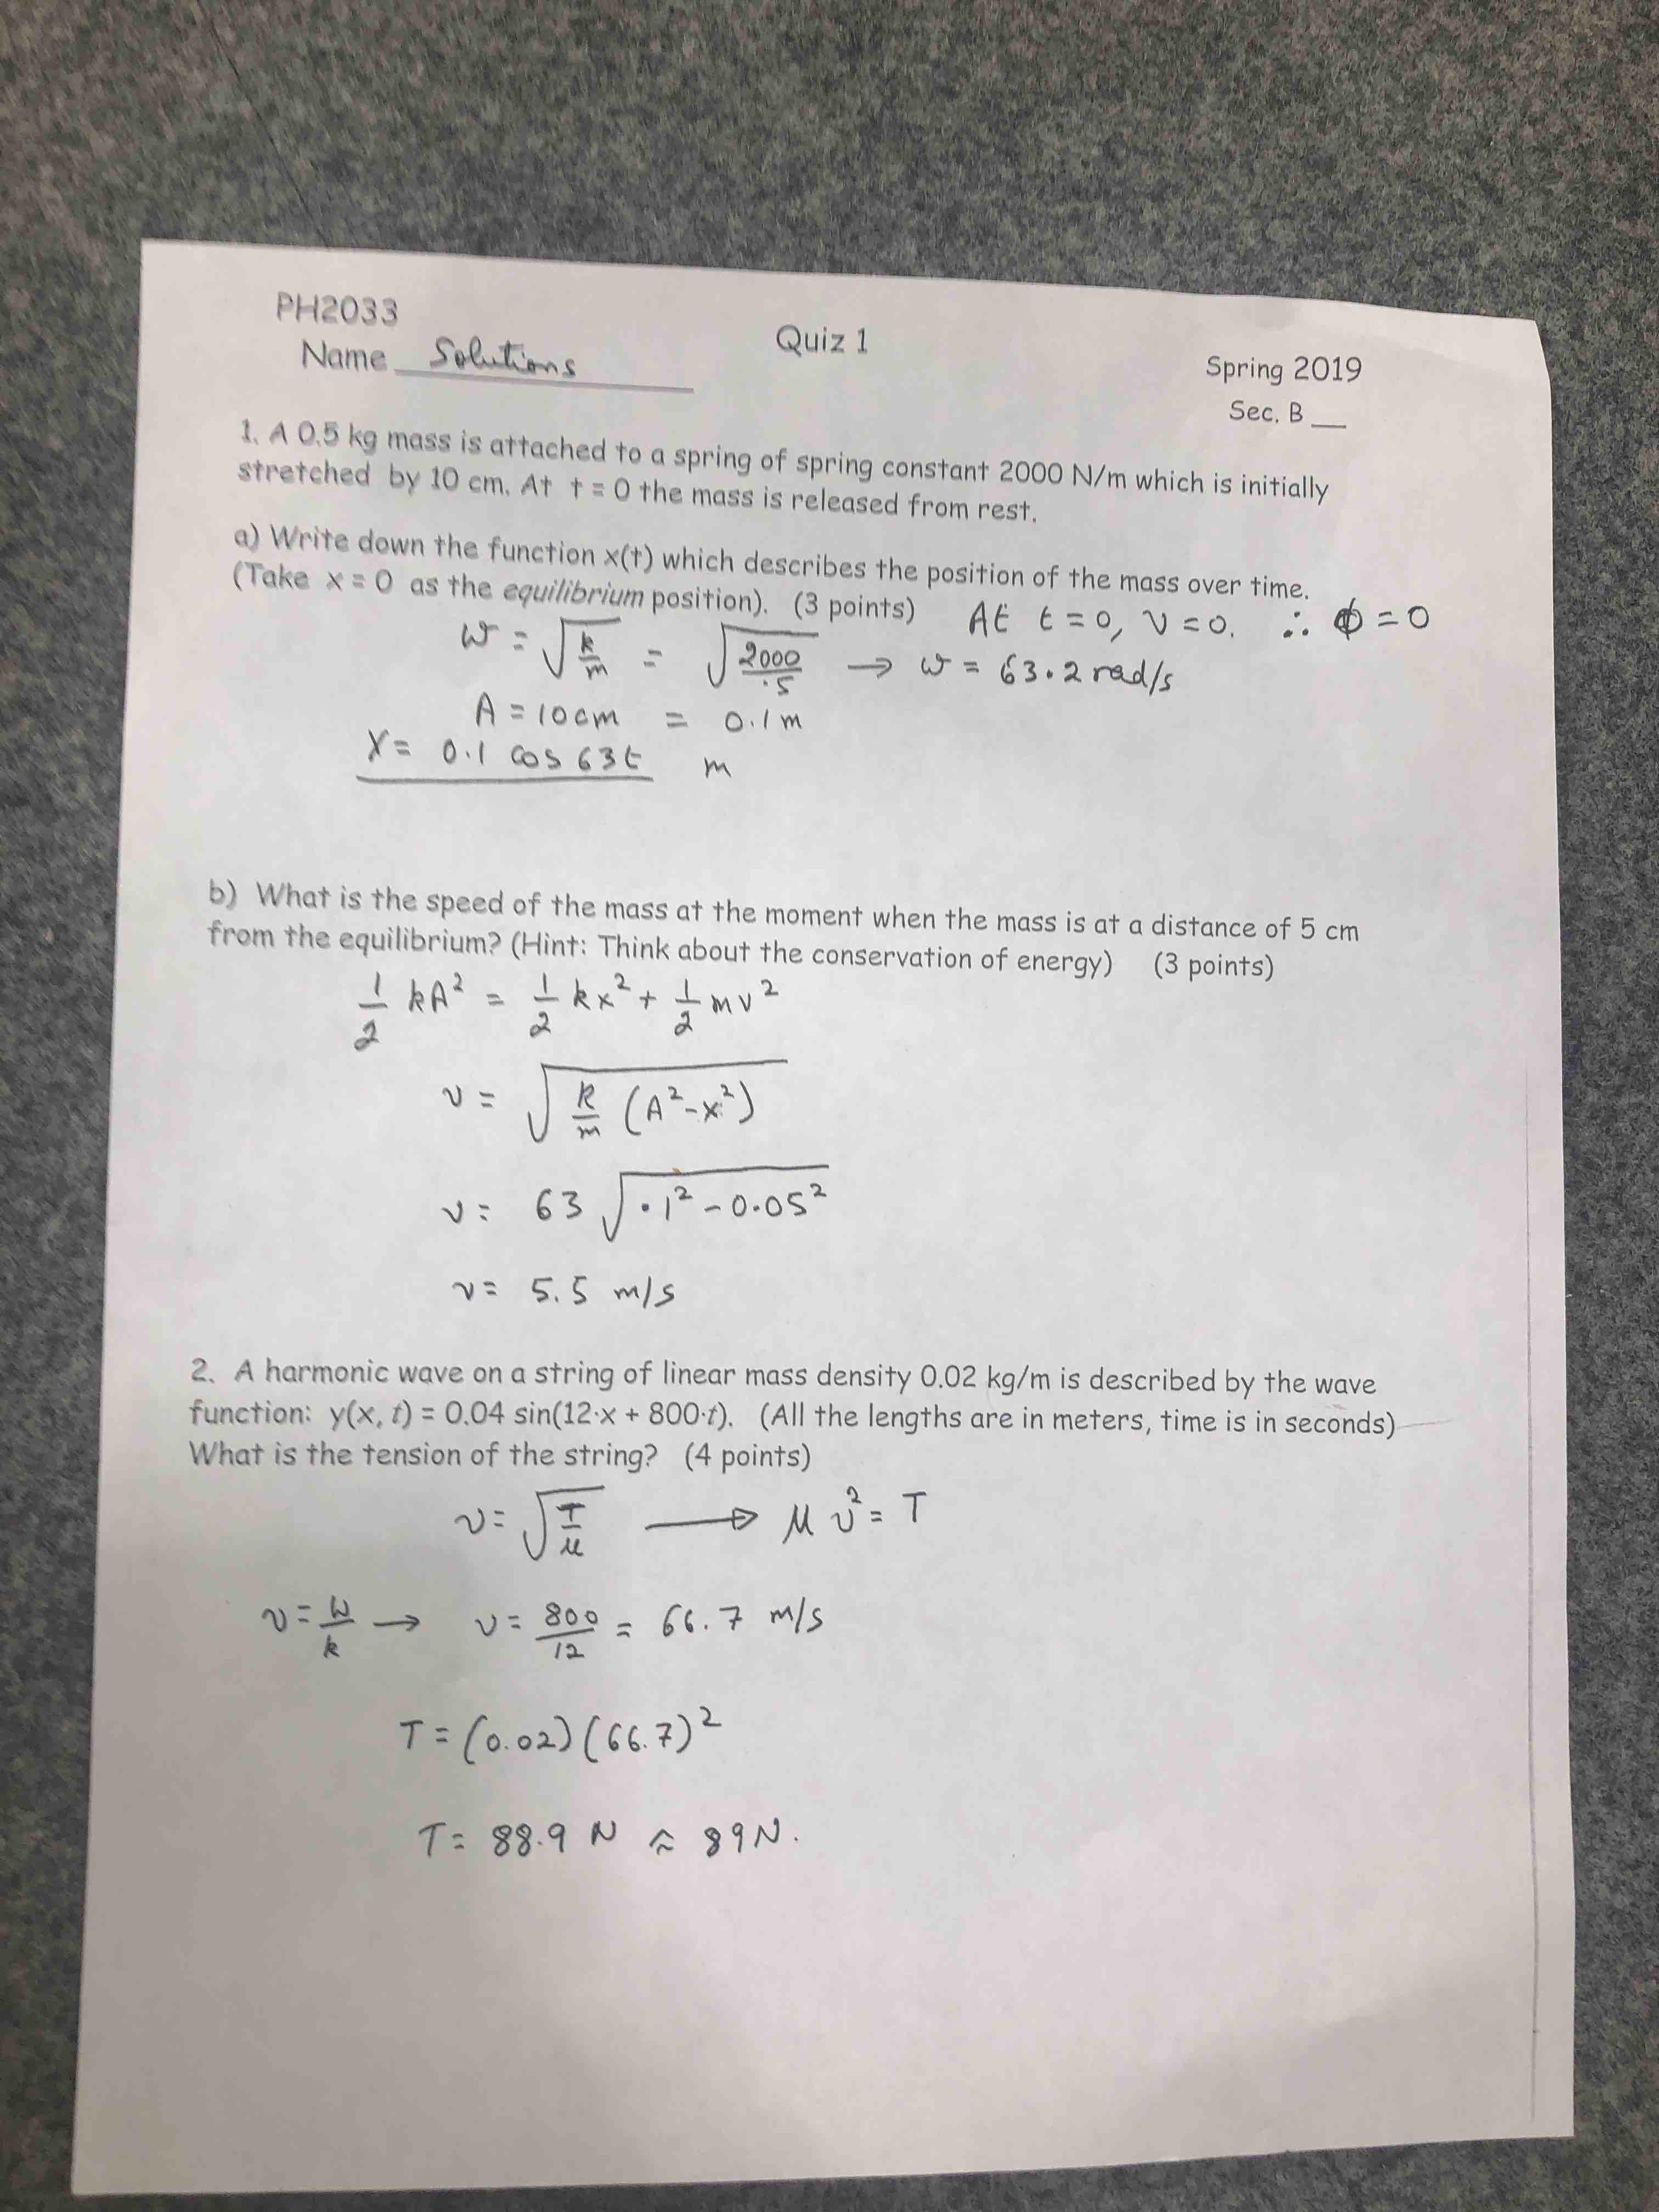 PH2033
Quiz 1
Spring 2019
Name Solutions
Sec. B __
1. A 0.5 kg mass is attached to a spring of spring constant 2000 N/m which is initially
stretched by 10 cm. At t = 0 the mass is released from rest.
a) Write down the function x(t) which describes the position of the mass over time.
(Take x = 0 as the equilibrium position). (3 points) At t = 0, v = 0. ∴ ϕ = 0
ω = √(k/m) = √(2000/.5) → ω = 63.2 rad/s
A = 10 cm = 0.1 m
X = 0.1 cos 63t m
b) What is the speed of the mass at the moment when the mass is at a distance of 5 cm
from the equilibrium? (Hint: Think about the conservation of energy) (3 points)
1/2 kA² = 1/2 kx² + 1/2 mv²
v = √(k/m (A²-x²))
v = 63 √(.1² - 0.05²)
v = 5.5 m/s
2. A harmonic wave on a string of linear mass density 0.02 kg/m is described by the wave
function: y(x, t) = 0.04 sin(12·x + 800·t). (All the lengths are in meters, time is in seconds)
What is the tension of the string? (4 points)
v = √(T/μ) → μ v² = T
v = ω/k → v = 800/12 = 66.7 m/s
T = (0.02)(66.7)²
T = 88.9 N ≈ 89 N.